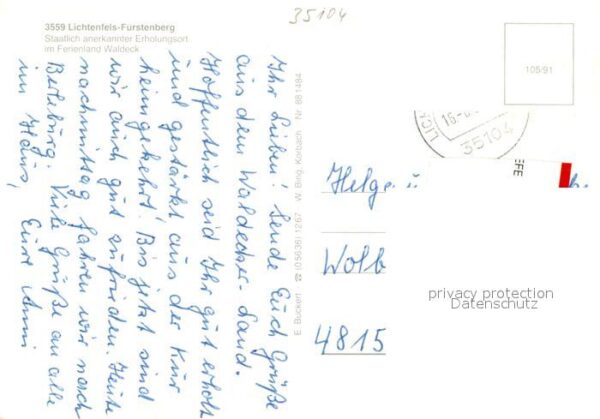 35104
3559 Lichtenfels-Fürstenberg
Staatlich anerkannter Erholungsort
im Ferienland Waldeck
Ihr Lieben! Sende Euch Grüße
aus dem Waldecker-Land.
Hoffentlich seid Ihr gut erholt
und gestärkt aus der Kur
heimgekehrt! Bis jetzt sind
wir auch gut zufrieden. Heute
nachmittag fahren wir nach
Berleburg. Viele Grüße an alle
im Haus, Eure Anni
E. Buckert ☎ (05636) 1267 W. Bing, Korbach Nr. 881484
105/91
LICH
35104
EFE
Helga u
Wolb
4815
privacy protection
Datenschutz